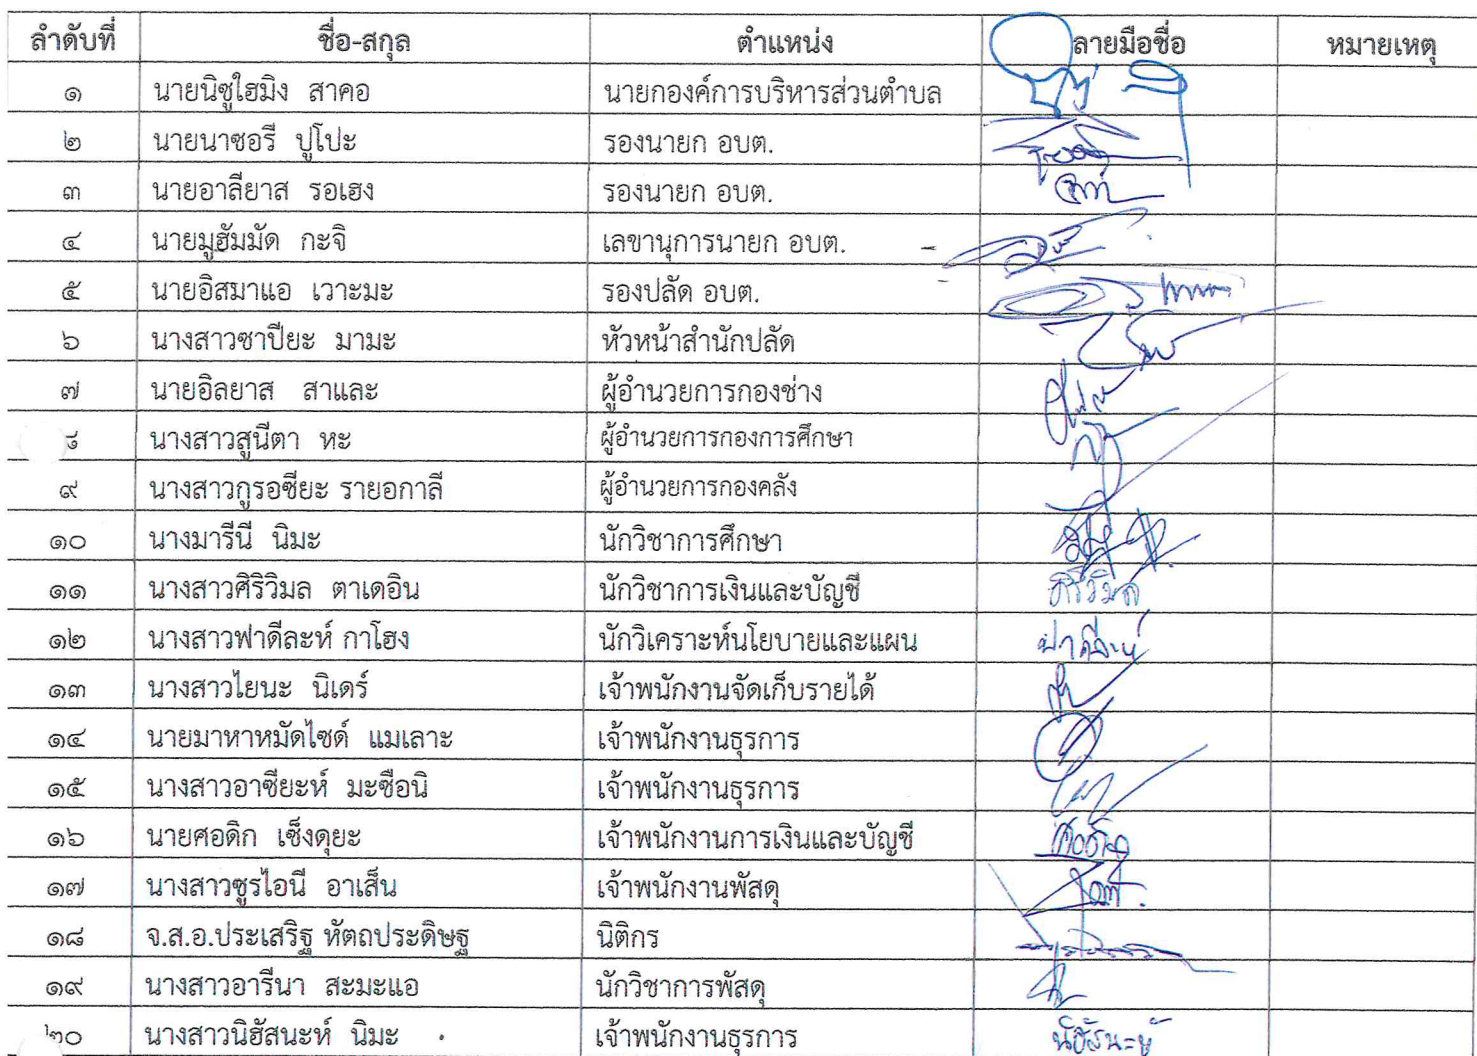 ลำดับที่ ชื่อ-สกุล ตำแหน่ง ลายมือชื่อ หมายเหตุ
๑ นายนิซูไฮมิง สาคอ นายกองค์การบริหารส่วนตำบล
๒ นายนาซอรี ปูโปะ รองนายก อบต.
๓ นายอาลียาส รอเฮง รองนายก อบต.
๔ นายมูฮัมมัด กะจิ เลขานุการนายก อบต.
๕ นายอิสมาแอ เวาะมะ รองปลัด อบต.
๖ นางสาวซาปียะ มามะ หัวหน้าสำนักปลัด
๗ นายอิลยาส สาและ ผู้อำนวยการกองช่าง
๘ นางสาวสูนีตา หะ ผู้อำนวยการกองการศึกษา
๙ นางสาวกูรอซียะ รายอกาลี ผู้อำนวยการกองคลัง
๑๐ นางมารีนี นิมะ นักวิชาการศึกษา
๑๑ นางสาวศิริวิมล ตาเดอิน นักวิชาการเงินและบัญชี ศิริวิมล
๑๒ นางสาวฟาดีละห์ กาโฮง นักวิเคราะห์นโยบายและแผน ฟาดีละห์
๑๓ นางสาวไยนะ นิเดร์ เจ้าพนักงานจัดเก็บรายได้
๑๔ นายมาหาหมัดไซด์ แมเลาะ เจ้าพนักงานธุรการ
๑๕ นางสาวอาซียะห์ มะซือนิ เจ้าพนักงานธุรการ
๑๖ นายศอดิก เซ็งดุยะ เจ้าพนักงานการเงินและบัญชี
๑๗ นางสาวซูรไอนี อาเส็น เจ้าพนักงานพัสดุ
๑๘ จ.ส.อ.ประเสริฐ หัตถประดิษฐ นิติกร
๑๙ นางสาวอารีนา สะมะแอ นักวิชาการพัสดุ
๒๐ นางสาวนิฮัสนะห์ นิมะ เจ้าพนักงานธุรการ นิฮัสนะห์